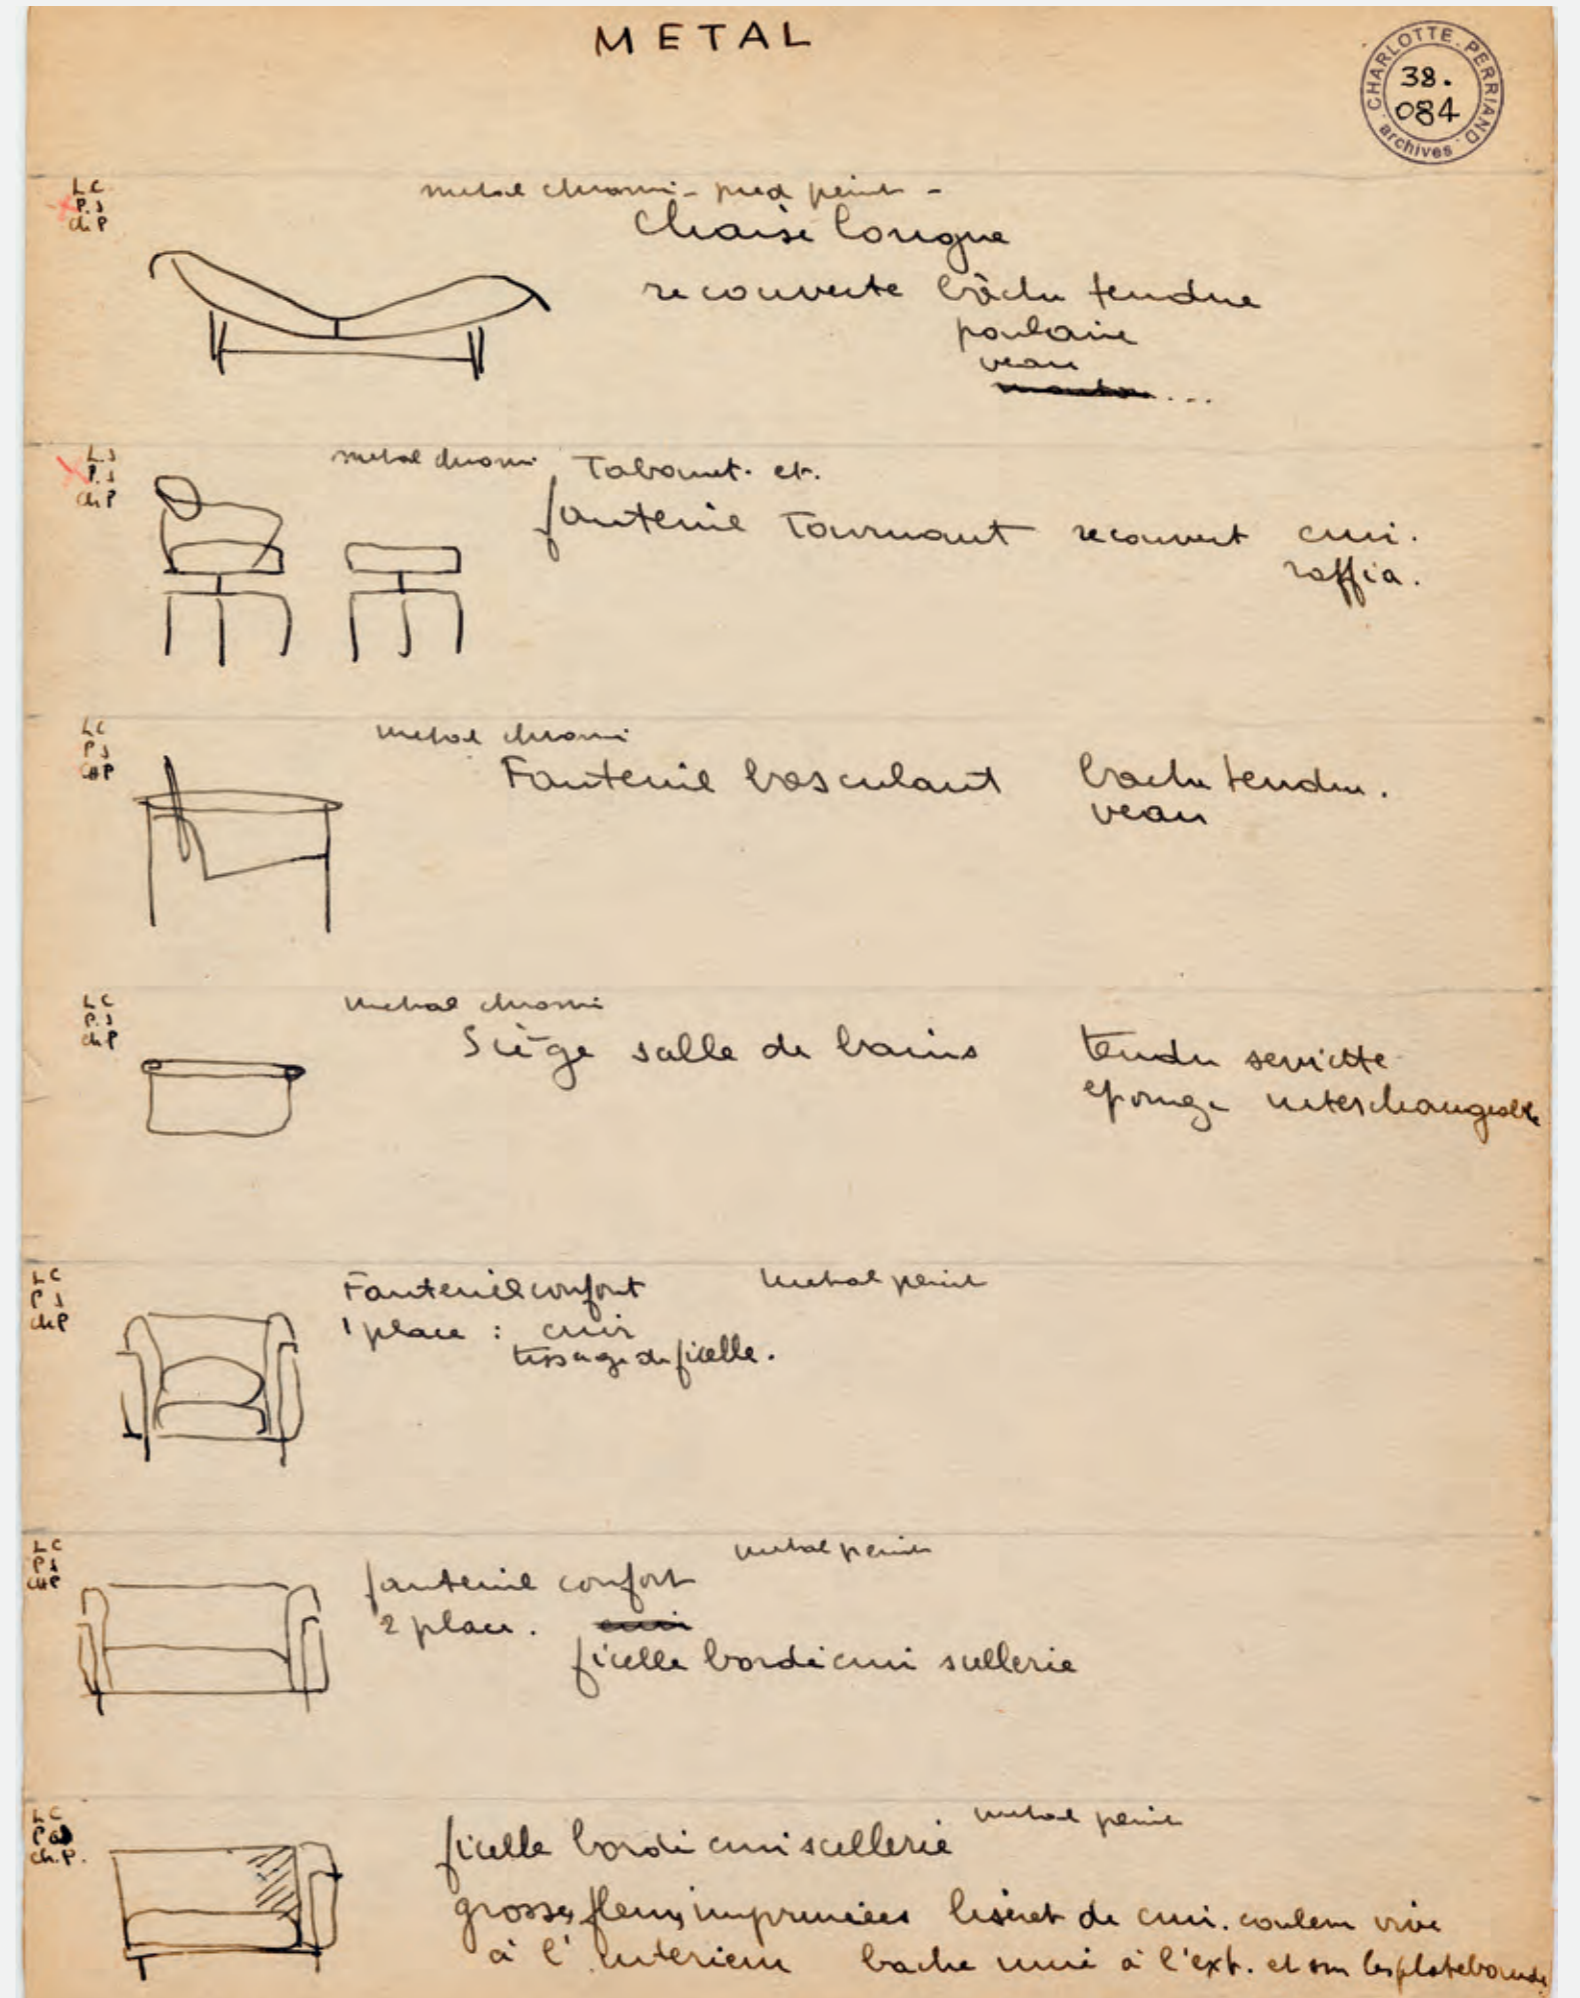 METAL
CHARLOTTE PERRIAND
38.
084
archives
LC
P.J
ch P
metal chromé - pied peint -
chaise longue
recouverte bâche tendue
poulain
veau
mouton ...
L.J
P.J
ch P
metal chromé
Tabouret. et.
fauteuil Tournant recouvert cuir.
raffia.
LC
PJ
CHP
metal chromé
Fauteuil basculant bache tendue.
veau
LC
P.J
ch P
metal chromé
Siège salle de bains tendu serviette
eponge interchangeable
LC
PJ
ch P
Fauteuil confort metal peint
1 place : cuir
tissage de ficelle.
LC
PJ
CHP
metal peint
fauteuil confort
2 place. cuir
ficelle bordé cuir sellerie
LC
PJ
ch. P.
metal peint
ficelle bordé cuir sellerie
grosses fleurs imprimées liseret de cuir. couleur vive
à l'interieur bache unie à l'ext. et sur les platebandes